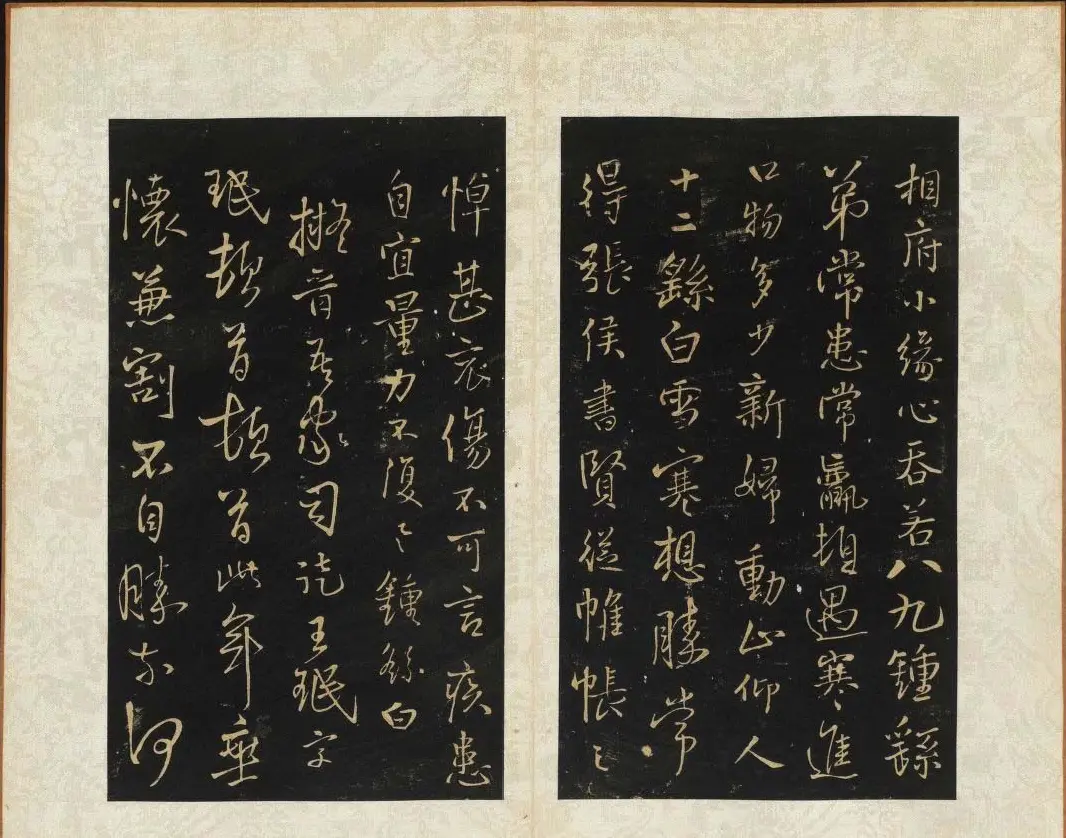 相府小緣心吞若八九鍾繇
弟常患常羸頓遇寒進
口物多少新婦動止仰人
十二繇白雪寒想勝常
得張侯書賢從帷帳之
悼甚哀傷不可言疾患
自宜量力不復之鍾繇白
擬晉吾家司徒王珉字
珉頓首頓首此年垂
懷兼割不自勝奈何